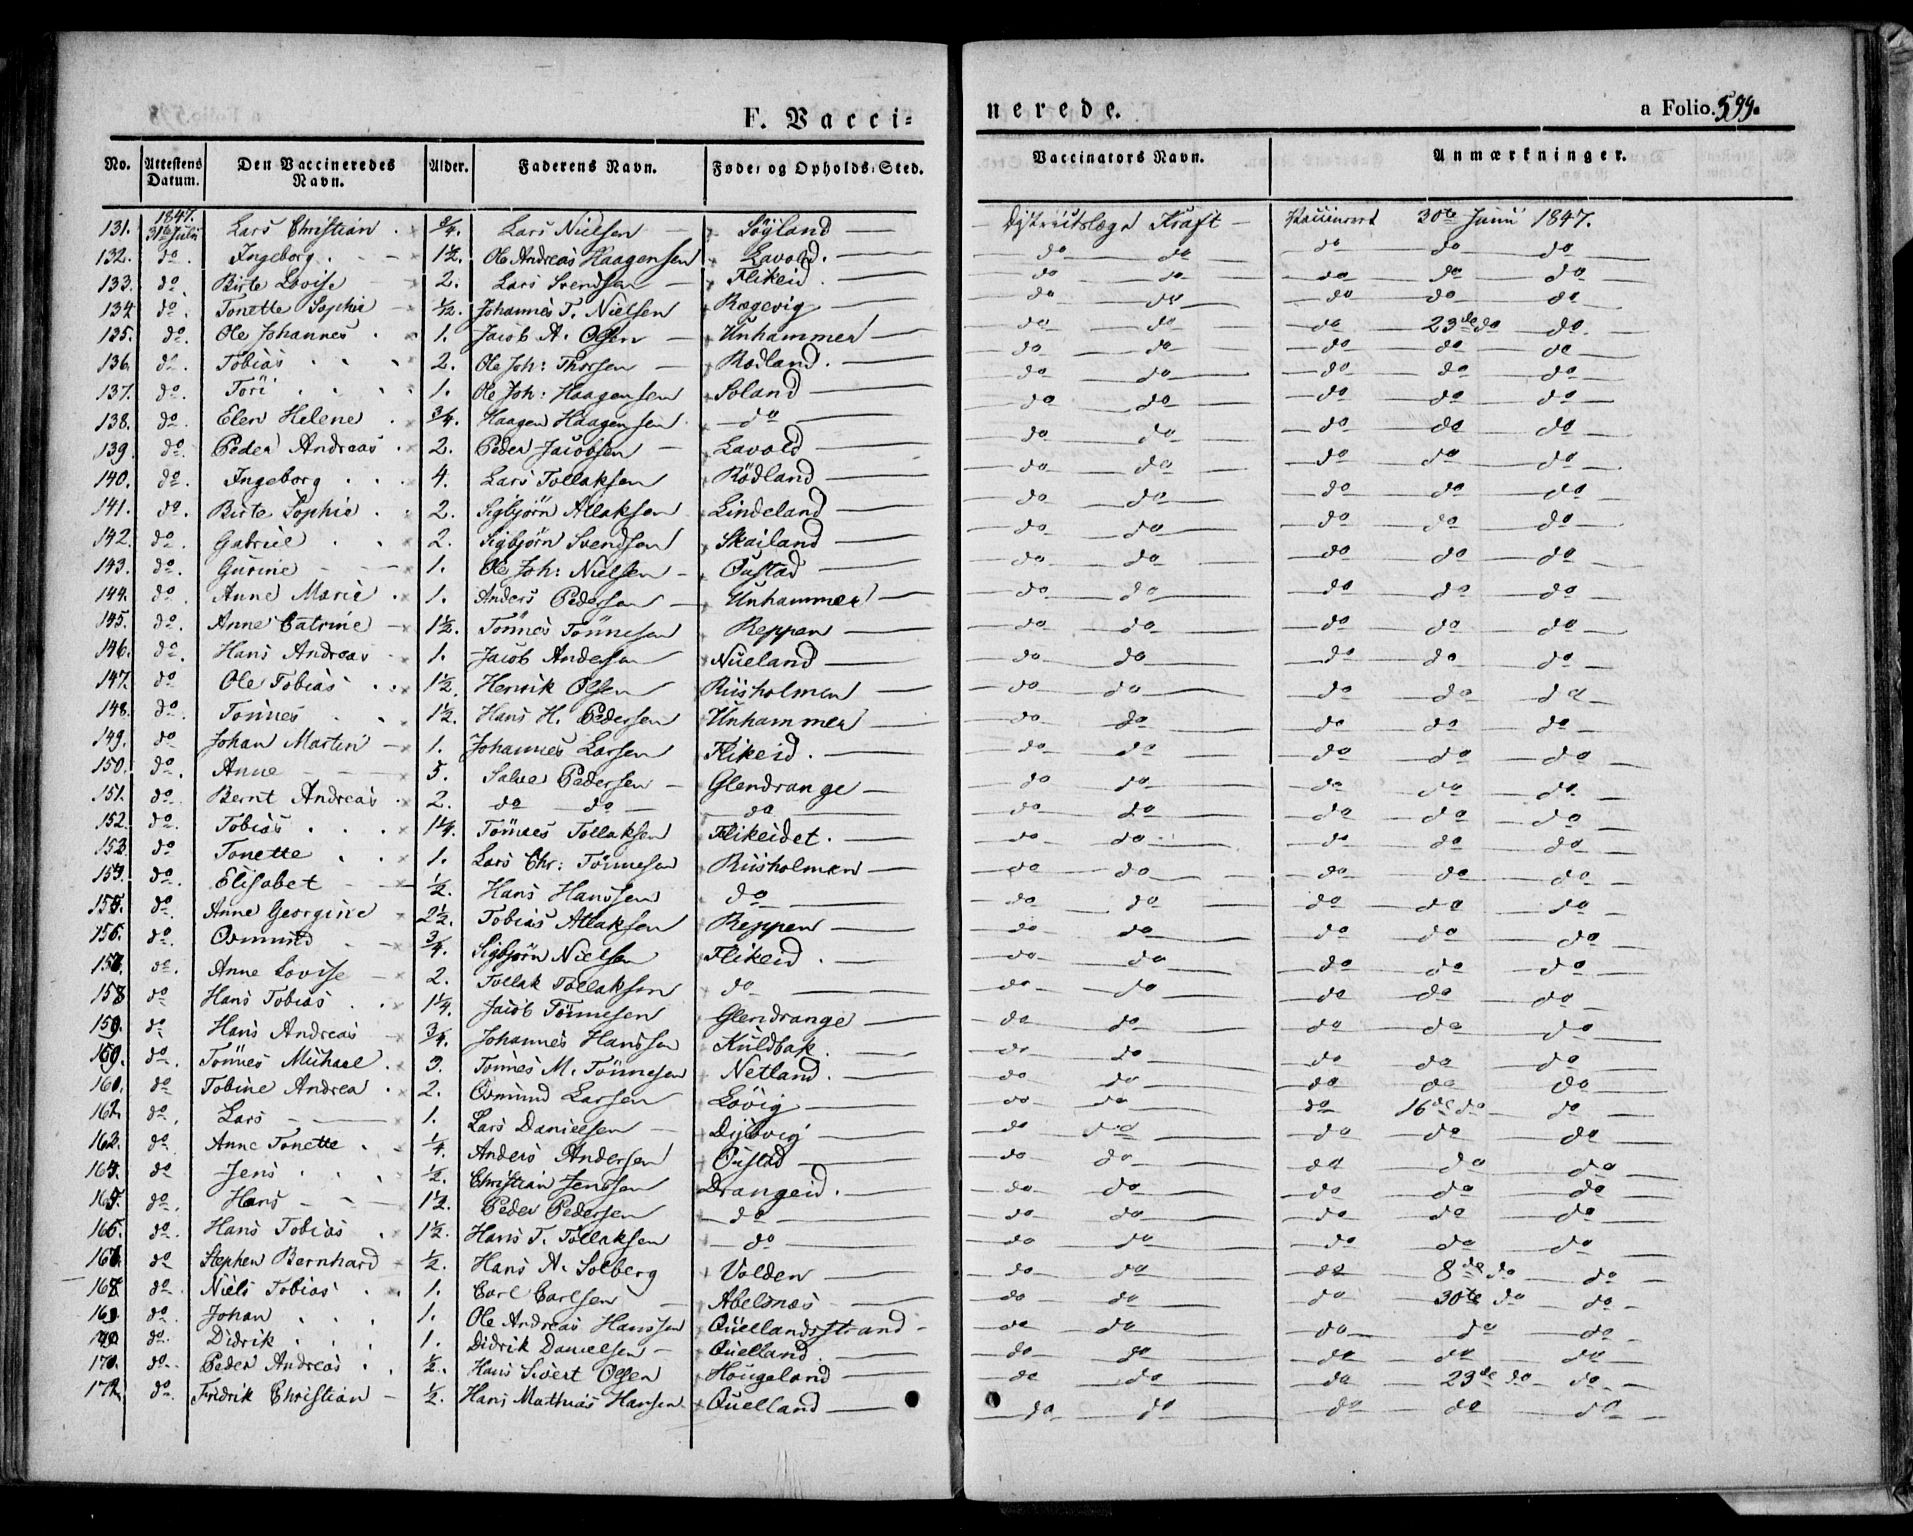 F. Vacci= nerede. a Folio. 599.
No. Attestens Datum. Den Vaccineredes Navn. Alder. Faderens Navn. Føde- og Opholds-Sted. Vaccinators Navn. Anmærkninger.
131. 1847. 31te Juli Lars Christian 3/4. Lars Nielsen Söyland Distriktslæge Kraft Vaccineret 30te Junii 1847.
132. do. Ingeborg 1 1/2. Ole Andreas Haagensen Lavold. do do do do do
133. do. Birte Lovise 2. Lars Svendsen Flikeid. do do do do do
134 do. Tonette Sophie 1/2. Johannes T. Nielsen Rægevig do do do do do
135. do. Ole Johannes 1. Jacob A. Olsen Unhammer do do do 23de do do
136. do. Tobias 2. Ole Joh: Thorsen Rödland. do do do do do
137. do. Tori 1. Ole Joh: Haagensen Soland do do do do do
138. do. Elen Helene 3/4. Haagen Haagensen do do do do do do
139. do. Peder Andreas 2. Peder Jacobsen Lavold do do do do do
140. do. Ingeborg 4. Lars Tollaksen Rödland do do do do do
141. do. Birte Sophie 2. Sigbjörn Atlaksen Lindeland do do do do do
142. do. Gabriel 2. Sigbjörn Svendsen Skailand do do do do do
143. do. Gurine 1. Ole Joh: Nielsen Oustad do do do do do
144. do. Anne Marie 1. Anders Pedersen Unhammer do do do do do
145. do. Anne Catrine 1 1/2. Tönnes Tönnesen Reppen do do do do do
146. do. Hans Andreas 1. Jacob Andersen Nueland do do do do do
147. do Ole Tobias 1 1/2. Henrik Olsen Riisholmen do do do do do
148. do. Tönnes 1 1/2. Hans H. Pedersen Unhammer do do do do do
149. do Johan Martin 1. Johannes Larsen Flikeid. do do do do do
150. do. Anne 5. Salve Pedersen Glendrange do do do do do
151. do. Bernt Andreas 2. do do do do do do do do
152. do. Tobias 1 1/4. Tönnes Tollaksen Flikeidet. do do do do do
153. do Tonette 1. Lars Chr: Tönnesen Riisholmen do do do do do
154. do. Elisabet 1/2. Hans Hanssen do do do do do do
155. do. Anne Georgine 2 1/2. Tobias Atlaksen Reppen do do do do do
156. do. Osmund 3/4. Sigbjörn Nielsen Flikeid. do do do do do
157. do. Anne Lovise 2. Tollak Tollaksen do do do do do do
158 do Hans Tobias 1 1/4. Jacob Tönnesen Glendrange do do do do do
159. do Hans Andreas 3/4. Johannes Hanssen Kuldbak. do do do do do
do. Tönnes Michael 3. Tönnes M. Tönnesen Netland. do do do do do
do Tobine Andrea 2. Osmund Larsen Lövig do do do 16de do do
do. Lars 1. Lars Danielsen Dybvig do do do do do
do. Anne Tonette 1/4. Anders Andersen Oustad do do do do do
do Jens 1/2. Christian Jenssen Drangeid. do do do do do
do. Hans 1 1/2. Peder Pedersen do do do do do do
do. Hans Tobias 1 1/2. Hans T. Tollaksen do do do do do do
do Stephen Bernhard 1/2. Hans A. Solberg Volden do do do 8de do do
do. Niels Tobias 1. Carl Carlsen Abelsnæs do do do 30te do do
do. Johan 1. Ole Andreas Hanssen Quellandsstrand do do do do do
do. Didrik 1. Didrik Danielsen Quelland do do do do do
do. Peder Andreas 1/2. Hans Sivert Olsen Hougeland do do do 23de do do
do. Fredrik Christian 1/2. Hans Mathias Hansen Quelland do do do do do